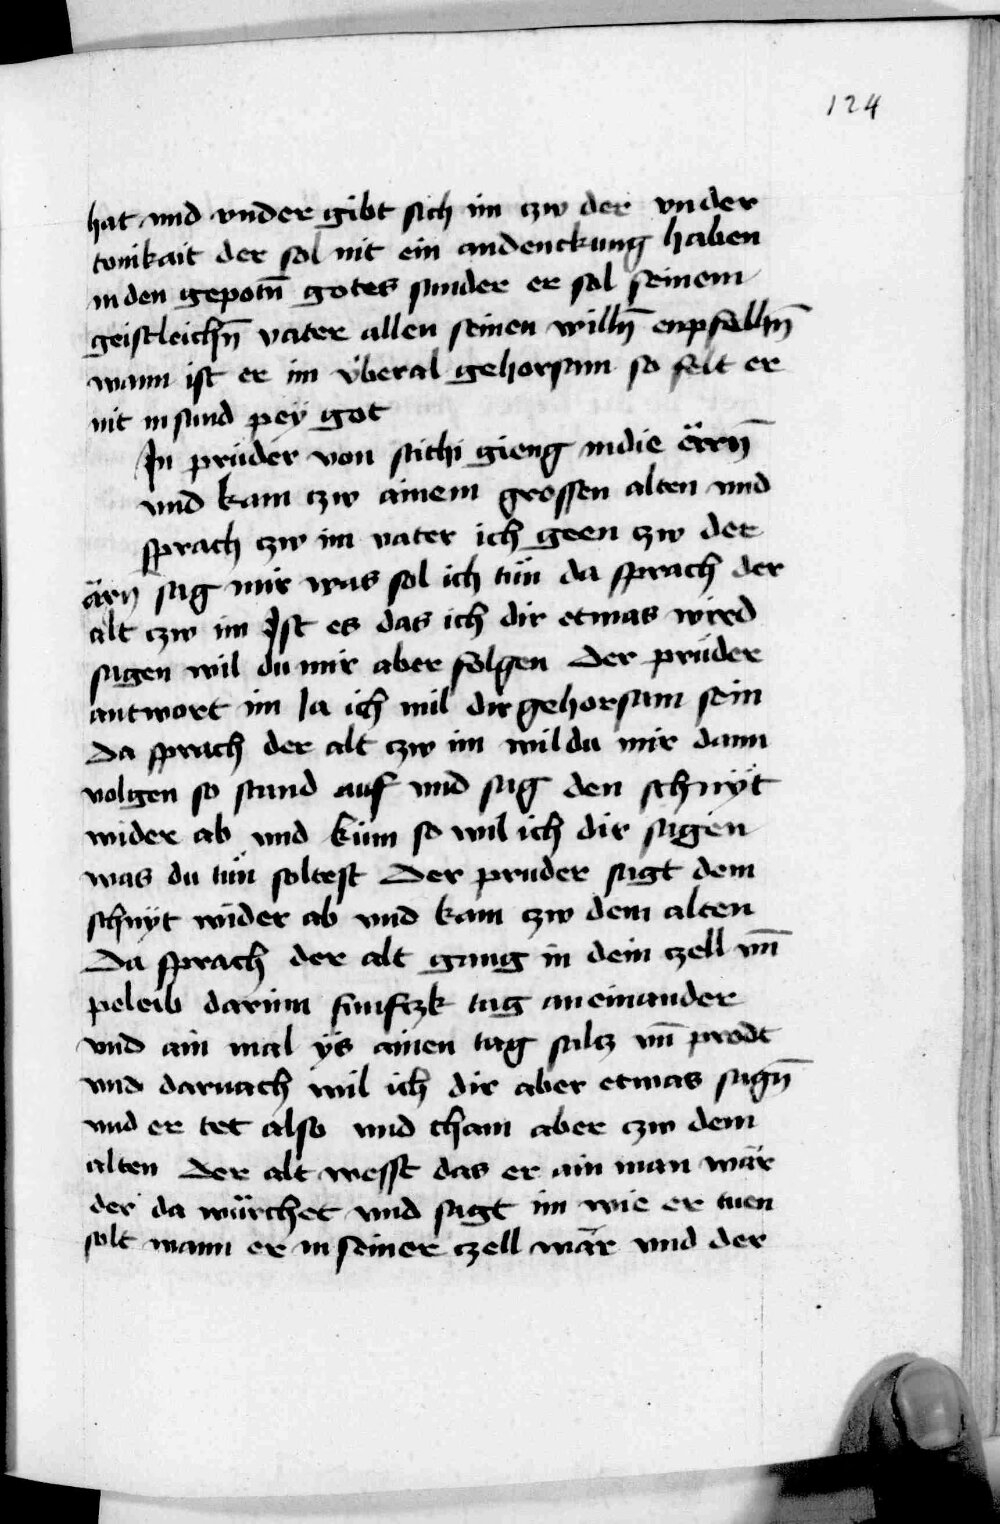 124
hat vnd vnder gibt sich im czw der vnder
tonikait der sol nit ein andenckung haben
in den gepotn̄ gotes sunder er sol seinem
geistleichn̄ vater allen seinen willn̄ enpfelhn̄
wann ist er im v̈beral gehorsam so felt er
nit in sund pey got
In prüder von sithi gieng in die ërrn̄
vnd kam czw ainem grossen alten vnd
sprach czw im vater ich geen czw der
ärn sag mir was sol ich tün da sprach der
alt czw im Ist es das ich dir etwas wird
sagen wil du mir aber folgen Der prüder
antwort im Ia ich wil dir gehorsam sein
Da sprach der alt czw im wil du mir dann
volgen so stand auf vnd sag den schnÿt
wider ab vnd küm so wil ich dir sagen
was du tün soltest Der pruder sagt dem
schnÿt wider ab vnd kam czw dem alten
Da sprach der alt gang in dein czell vn̄
peleib darinn funfczk tag an einander
vnd ain mal ÿs ainen tag salcz vn̄ prodt
vnd darnach wil ich dir aber etwas sagn̄
vnd er tet also vnd cham aber czw dem
alten Der alt wesst das er ain man wär
der da würchet vnd sagt im wie er tuen
solt wann er in seiner czell wär vnd der